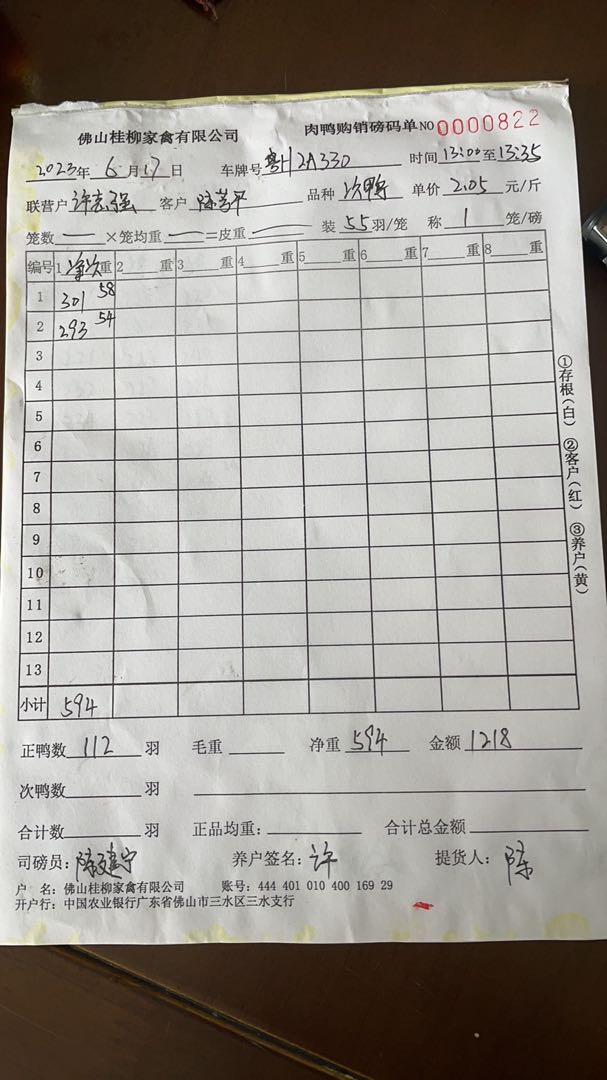 佛山桂柳家禽有限公司 肉鸭购销磅码单 NO 0000822
2023年 6月17日 车牌号 粤H2A330 时间 13:00至13:35
联营户 许志强 客户 陈 平 品种 次鸭 单价 2.05 元/斤
笼数 — ×笼均重 — =皮重 — 装 55 羽/笼 称 1 笼/磅
编号 1 净次重 2 重 3 重 4 重 5 重 6 重 7 重 8 重
1 301 58
2 293 54
3
4
5
6
7
8
9
10
11
12
13
小计 594
①存根(白) ②客户(红) ③养户(黄)
正鸭数 112 羽 毛重 净重 594 金额 1218
次鸭数 羽
合计数 羽 正品均重: 合计总金额
司磅员: 陈建宁 养户签名: 许 提货人: 陈
户 名: 佛山桂柳家禽有限公司 账号: 444 401 010 400 169 29
开户行: 中国农业银行广东省佛山市三水区三水支行